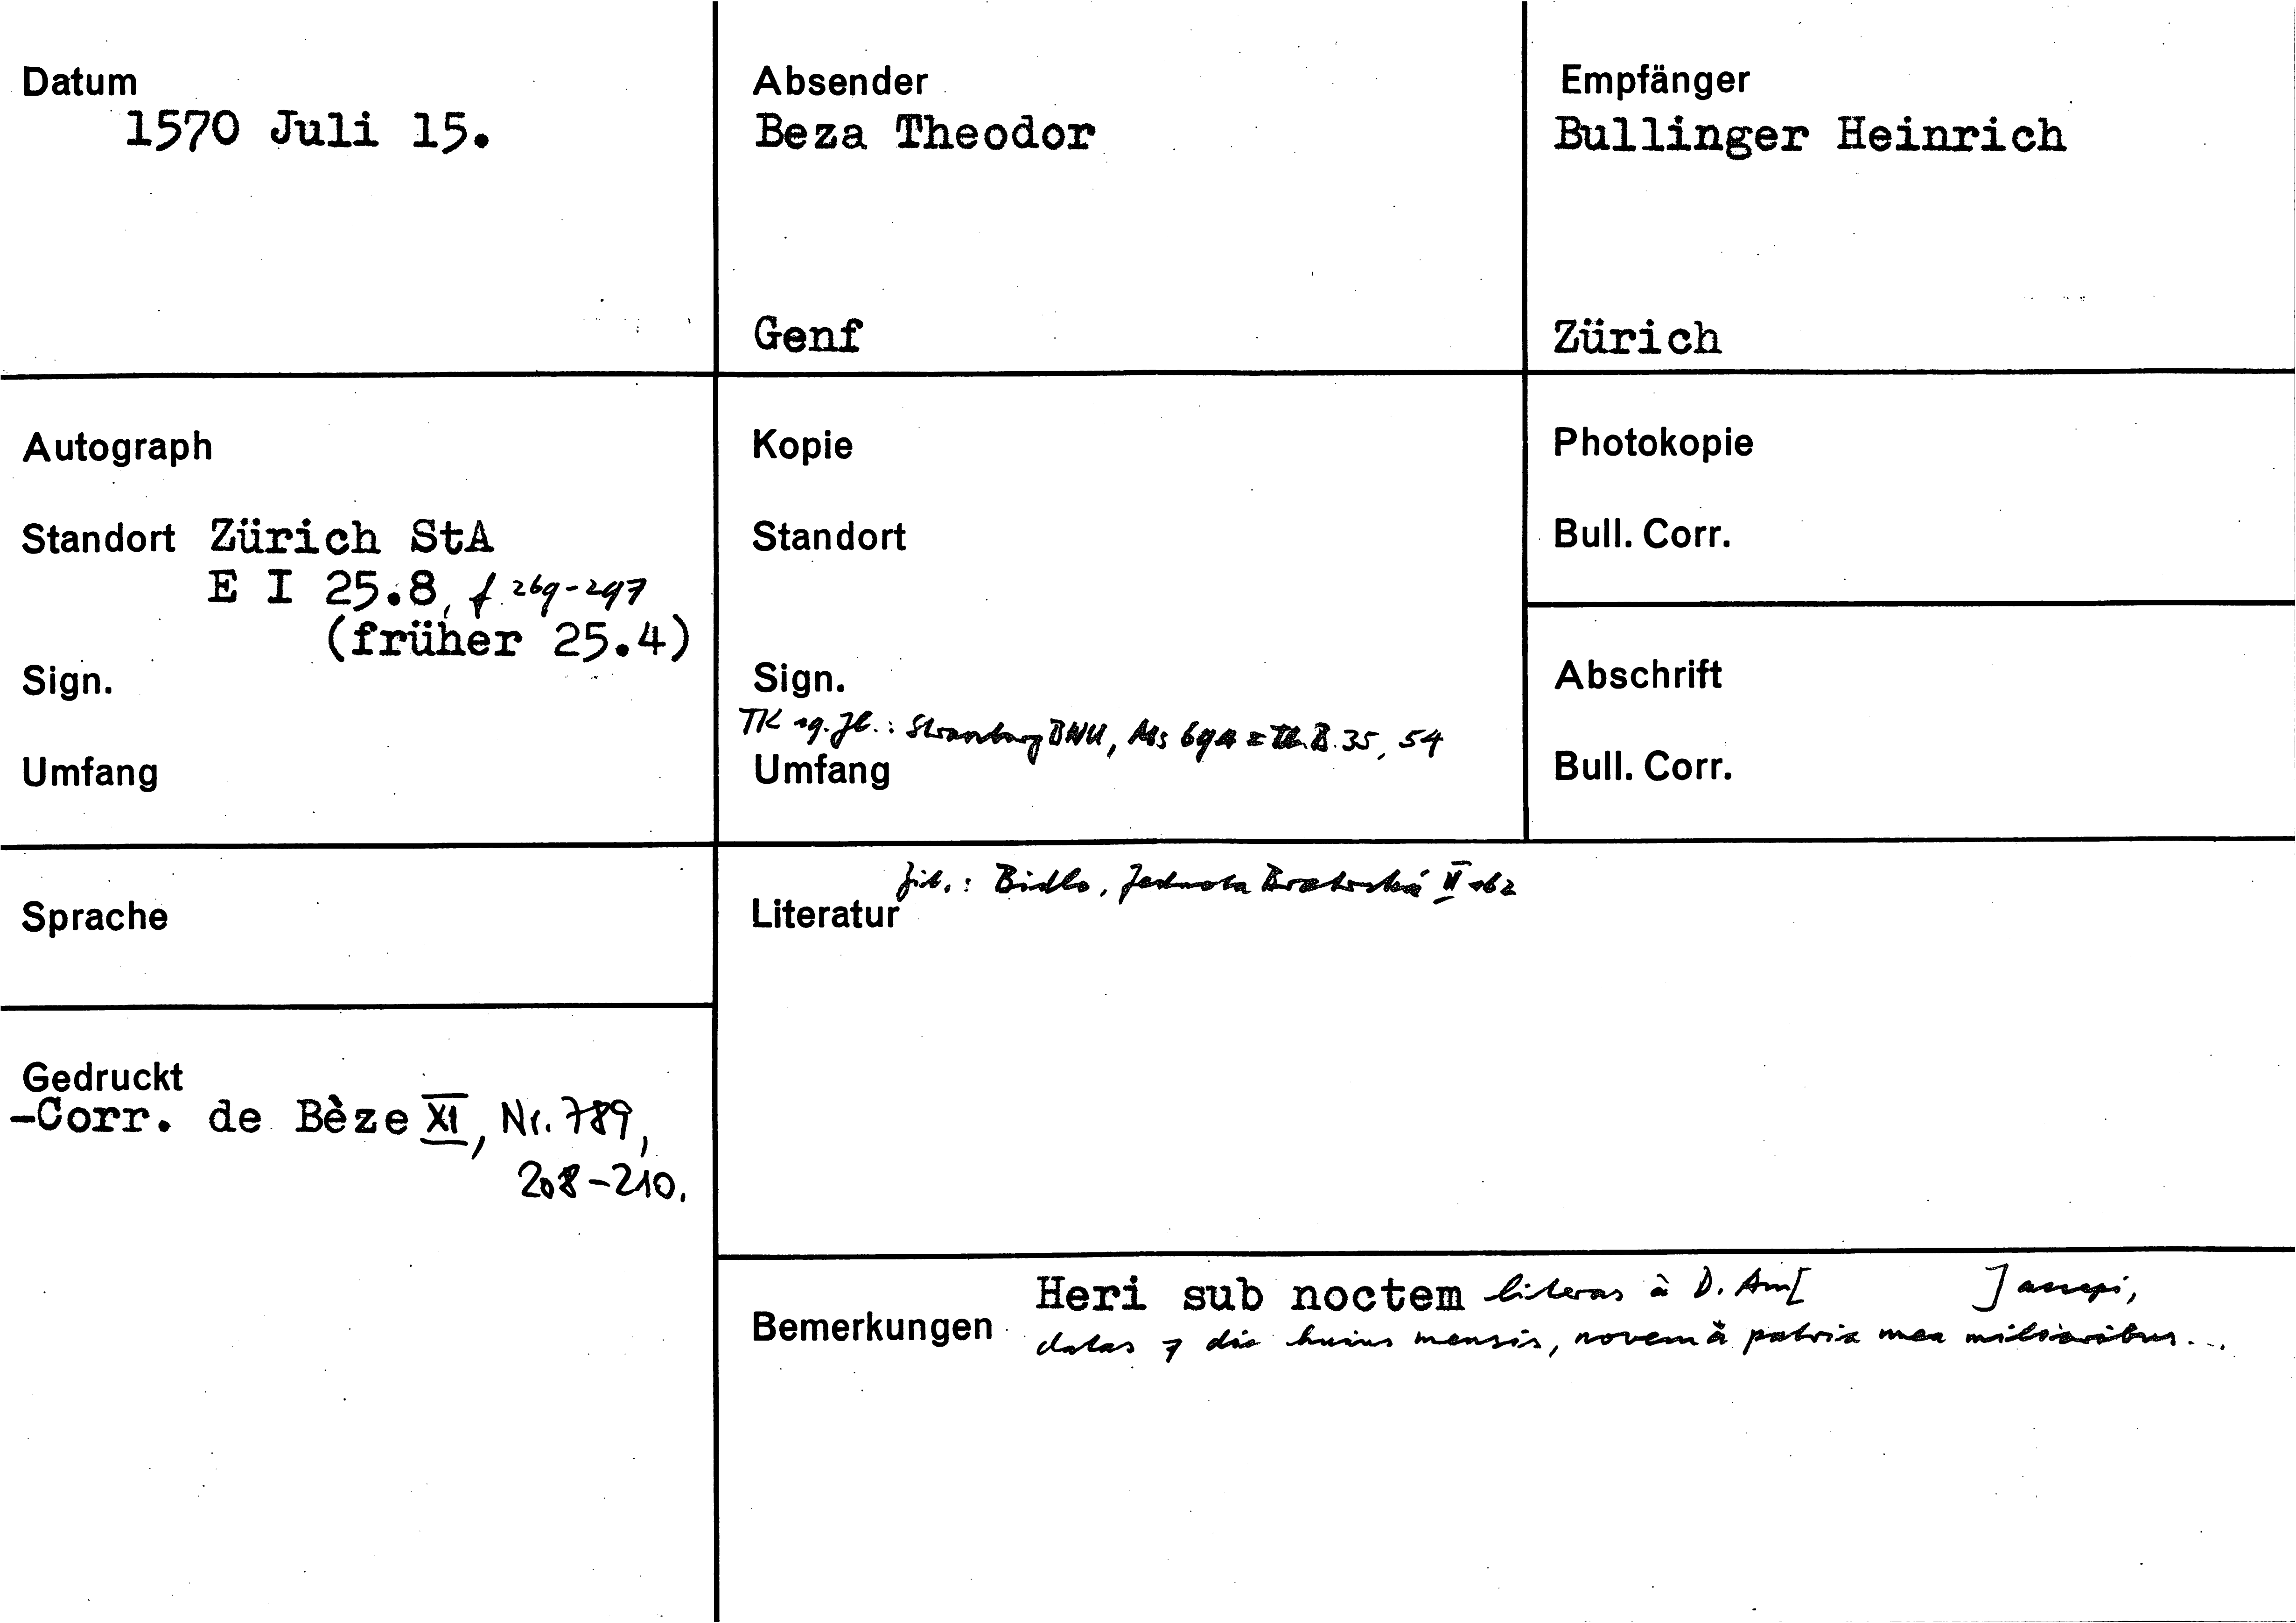 Datum
1570 Juli 15.
Absender
Beza Theodor
Genf
Empfänger
Bullinger Heinrich
Zürich
Autograph
Standort Zürich StA
E I 25.8, f. 269-297
(früher 25.4)
Sign.
Umfang
Kopie
Standort
Sign.
TK Strassburg BNU, Ms 694 = Th. B. 35, 54
Umfang
Photokopie
Bull. Corr.
Abschrift
Bull. Corr.
Sprache
Zit.: Bidlo, Jednota Bratrská II
Literatur
Gedruckt
-Corr. de Bèze XI, Nr. 789,
208-210.
Bemerkungen
Heri sub noctem literas à D. Am[ ] accepi,
datas 7 die huius mensis, novem à patria mea miliaribus...